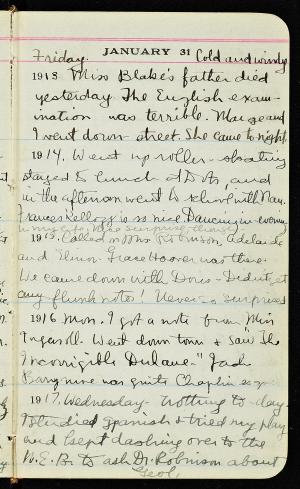 JANUARY 31
Friday. Cold and windy
1913 Miss Blake's father died
yesterday The English exam-
ination was terrible. Marge and
I went down street. She came to night.
1914. Went up roller-skating
stayed to lunch at D's, and
in the afternoon went to school with Nan.
Frances Kellogg is so nice Dancing in evening
1915. Called on Mrs Robinson, Adelaide
and Elinor. Grace Hoover was there.
We came down with Doris - Didn't get
any flunk notes! Never so surprised
in my life, nice surprise though
1916 Mon. I got a note from Miss
Ingersoll. Went down town & saw "The
Incorrigible Dukane" Jack
Barrymore was quite Chaplin esque
1917. Wednesday - Nothing to-day -
studied Spanish & tried my play
and kept dashing over to the
W.E.B. to ask Dr. Robinson about
Geol.